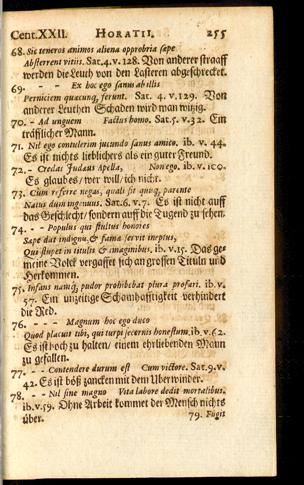 Cent.XXII. HORATII. 255
68. Sic teneros animos aliena opprobria sæpe
Absterrent vitiis. Sat.4.v.128. Von anderer straaff
werden die Leuth von den Lasteren abgeschrecket.
69. - - Ex hoc ego sanus ab illis
Perniciem quacunq; ferunt. Sat. 4. v.129. Von
anderer Leuthen Schaden wird man witzig.
70. - Ad unguem Factus homo. Sat.5. v.32. Ein
träfflicher Mann.
71. Nil ego contulerim jucundo sanus amico. ib. v. 44.
Es ist nichts lieblichers als ein guter Freund.
72. - Credat Judæus Apella, Non ego. ib. v. 100.
Es glaub es / wer will / ich nicht.
73. Cum referre negas, quali sit quisq; parente
Natus dum ingenuus. Sat.6. v.7. Es ist nicht auff
das Geschlecht / sondern auff die Tugend zu sehen.
74. - - Populus qui stultus honores
Sæpe dat indignis, & famæ servit ineptus,
Qui stupet in titulis & imaginibus. ib. v.15. Das ge-
meine Volck vergaffet sich an grossen Tituln und
Herkommen.
75. Infans namq; pudor prohibebat plura profari. ib. v.
57. Ein unzeitige Schamhafftigkeit verhindert
die Red.
76. - - - Magnum hoc ego duco
Quod placui tibi, qui turpi secernis honestum. ib. v.62.
Es ist hoch zu halten / einem ehrliebenden Mann
zu gefallen.
77. - - Contendere durum est Cum victore. Sat.9. v.
42. Es ist böß zancken mit dem Uberwinder.
78. - - Nil sine magno Vita labore dedit mortalibus.
ib. v.59. Ohne Arbeit kommet der Mensch nichts
über. 79. Fugit